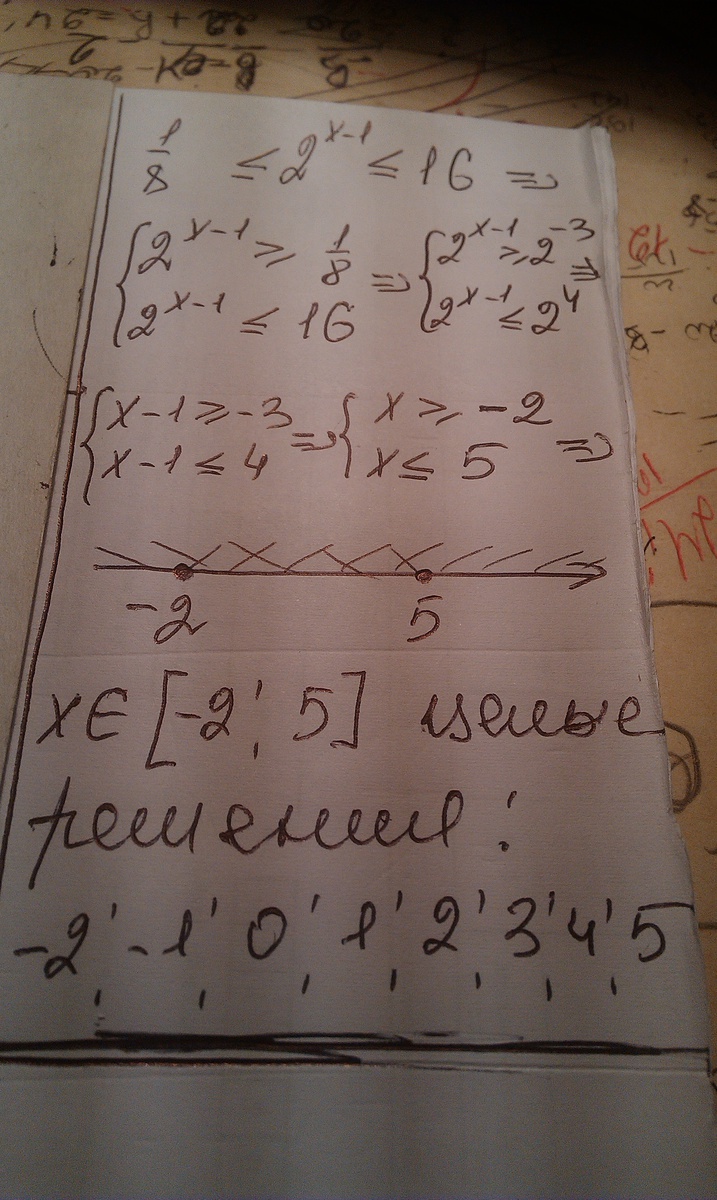 1/8 ≤ 2^(x-1) ≤ 16 ⇒
{ 2^(x-1) ≥ 1/8 ⇒ { 2^(x-1) ≥ 2^(-3) ⇒
{ 2^(x-1) ≤ 16 { 2^(x-1) ≤ 2^4
{ x-1 ≥ -3 ⇒ { x ≥ -2 ⇒
{ x-1 ≤ 4 { x ≤ 5
-2 5
x∈[-2; 5] целые
решения:
-2; -1; 0; 1; 2; 3; 4; 5